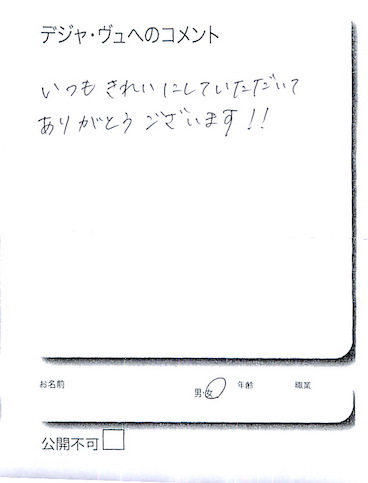 デジャ・ヴュへのコメント
いつもきれいにしていただいて
ありがとうございます!!
お名前 男・女 年齢 職業
公開不可